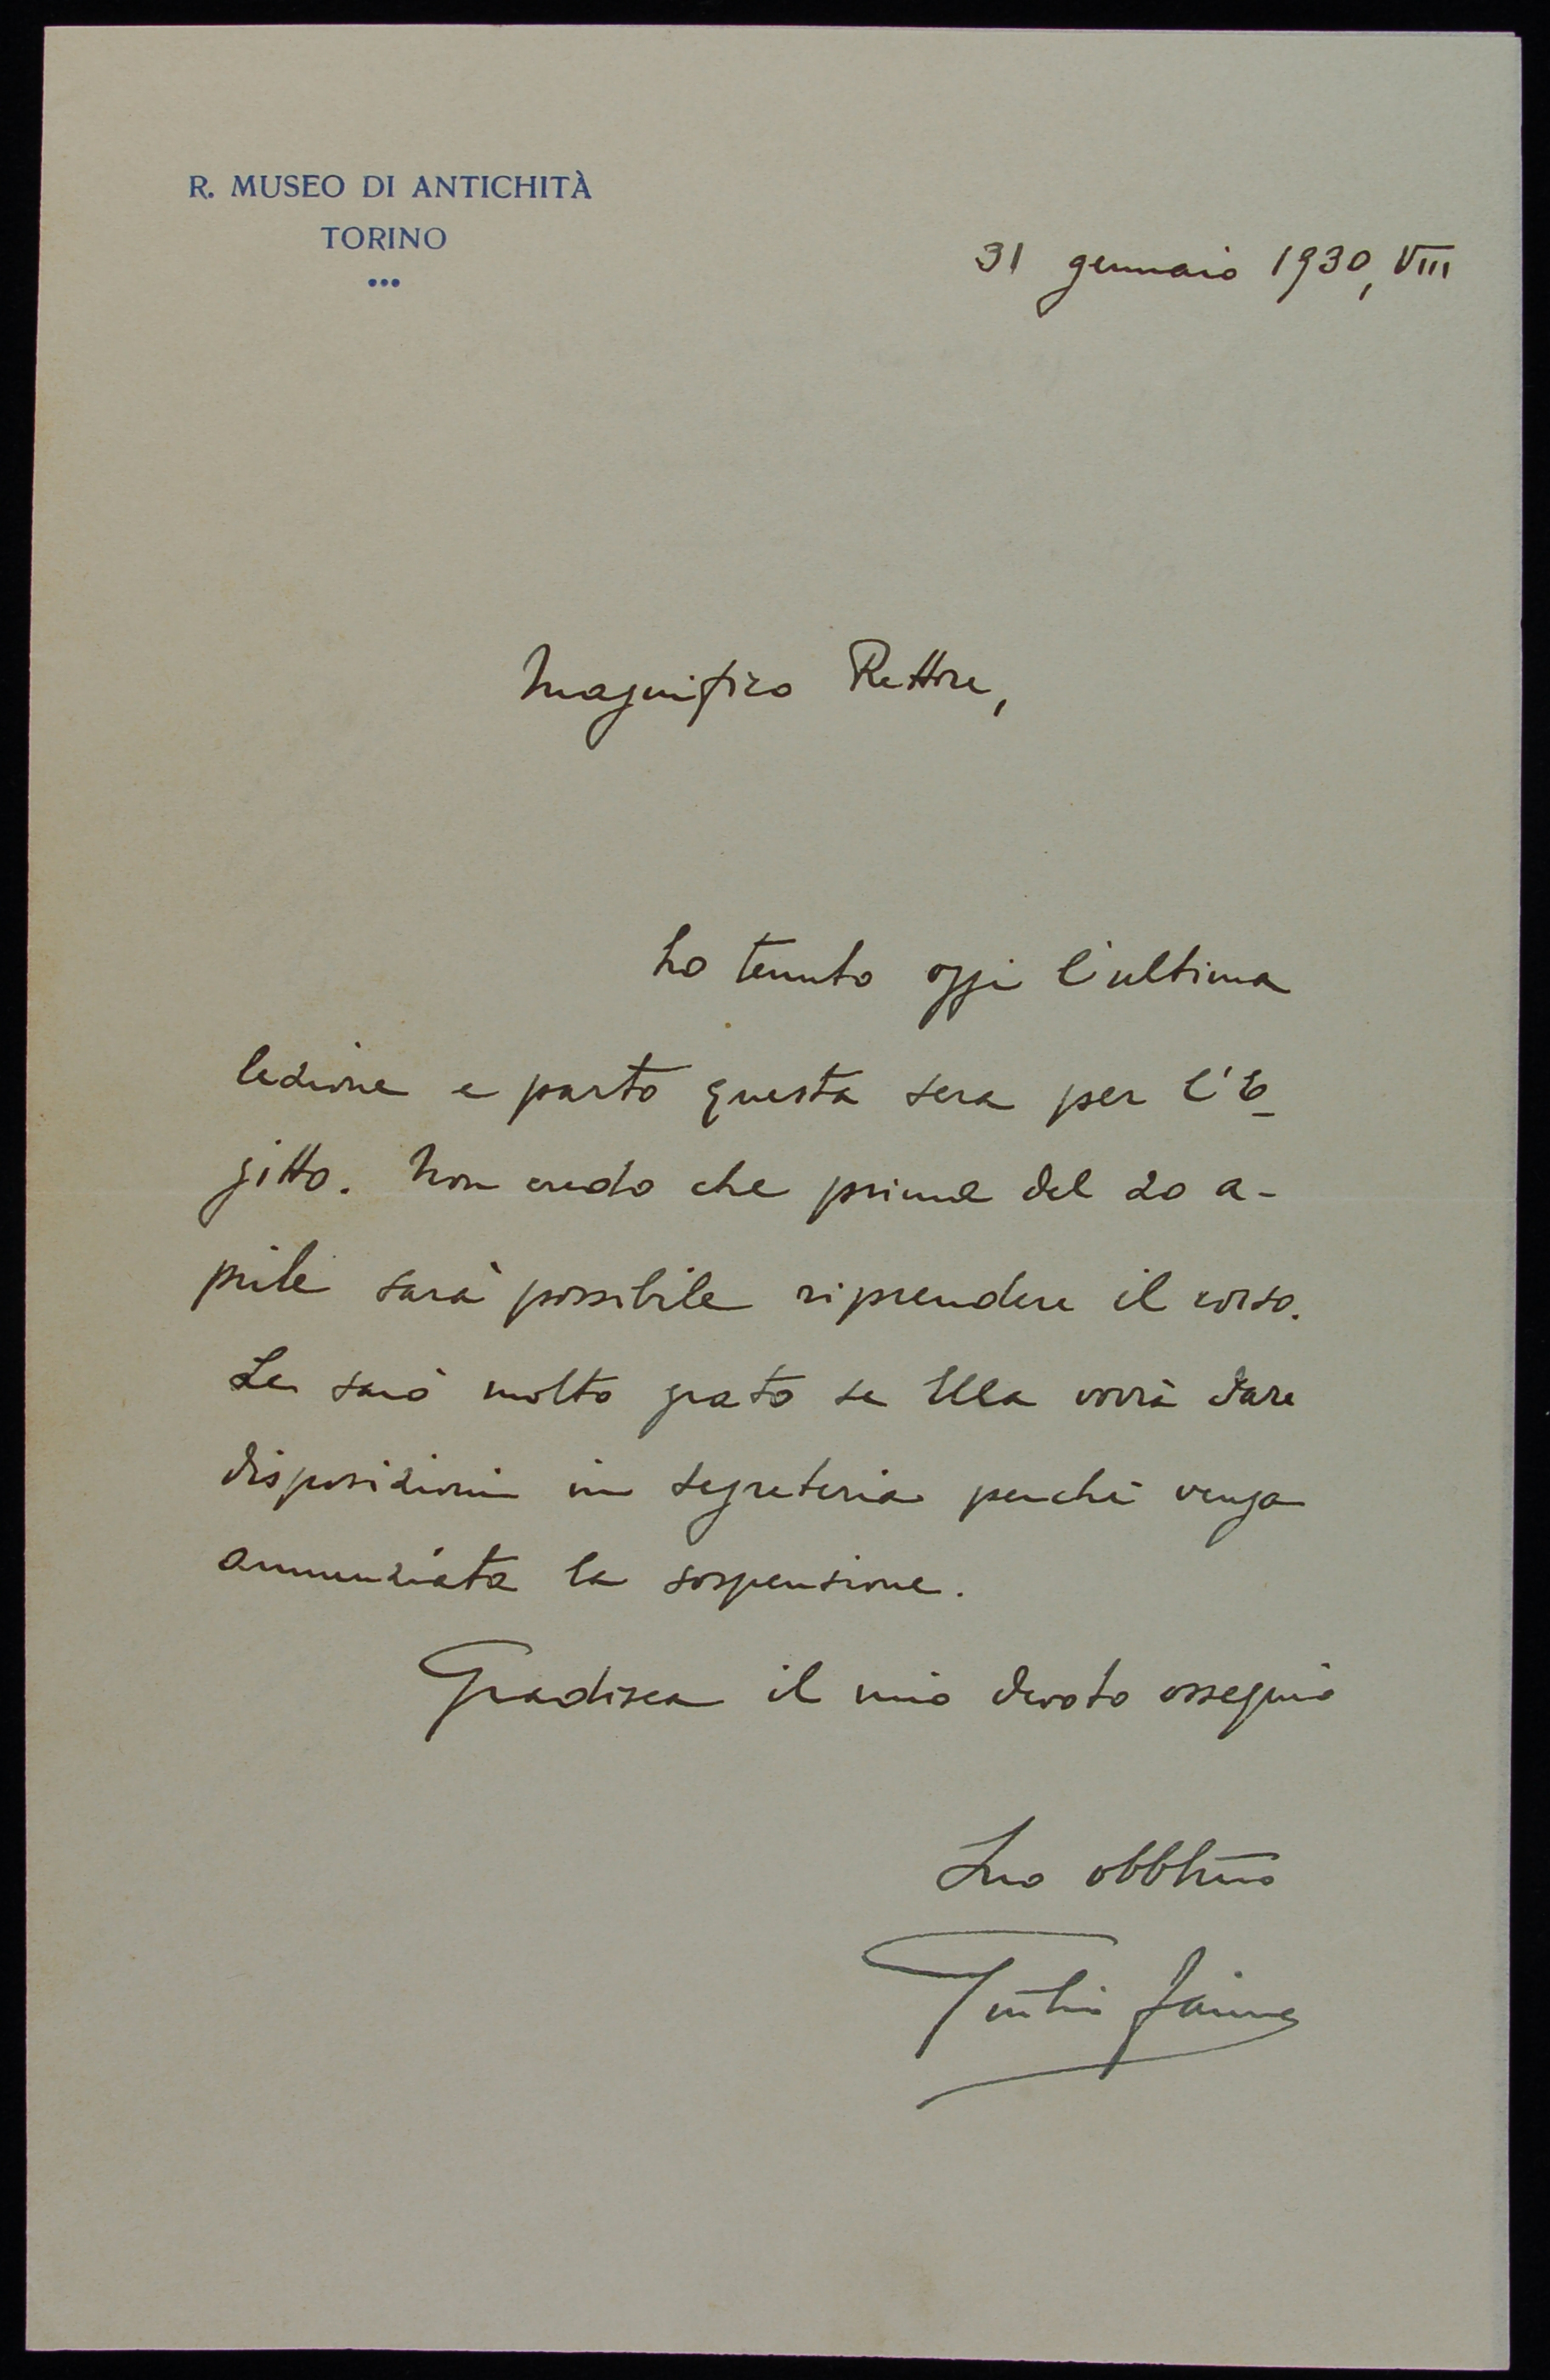 R. MUSEO DI ANTICHITÀ
TORINO
31 gennaio 1930, VIII
Magnifico Rettore,
ho tenuto oggi l'ultima
lezione e parto questa sera per l'E-
gitto. Non credo che prima del 20 a-
prile sarà possibile riprendere il corso.
Le sarò molto grato se Ella vorrà dare
disposizioni in segreteria perchè venga
annunziata la sospensione.
Gradisca il mio devoto ossequio
Suo obbl̄mo
Giulio Farina